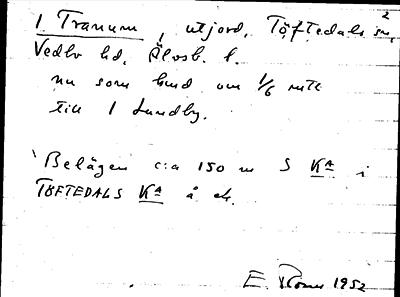 2
1 Tranum, utjord, Töftedals sn,
Vedbo hd, Älvsb. l.
nu som hmd om 1/6 mtl
till 1 Lundby.
Belägen c:a 150 m S KA i
TÖFTEDALS KA å ek.
E. 1952